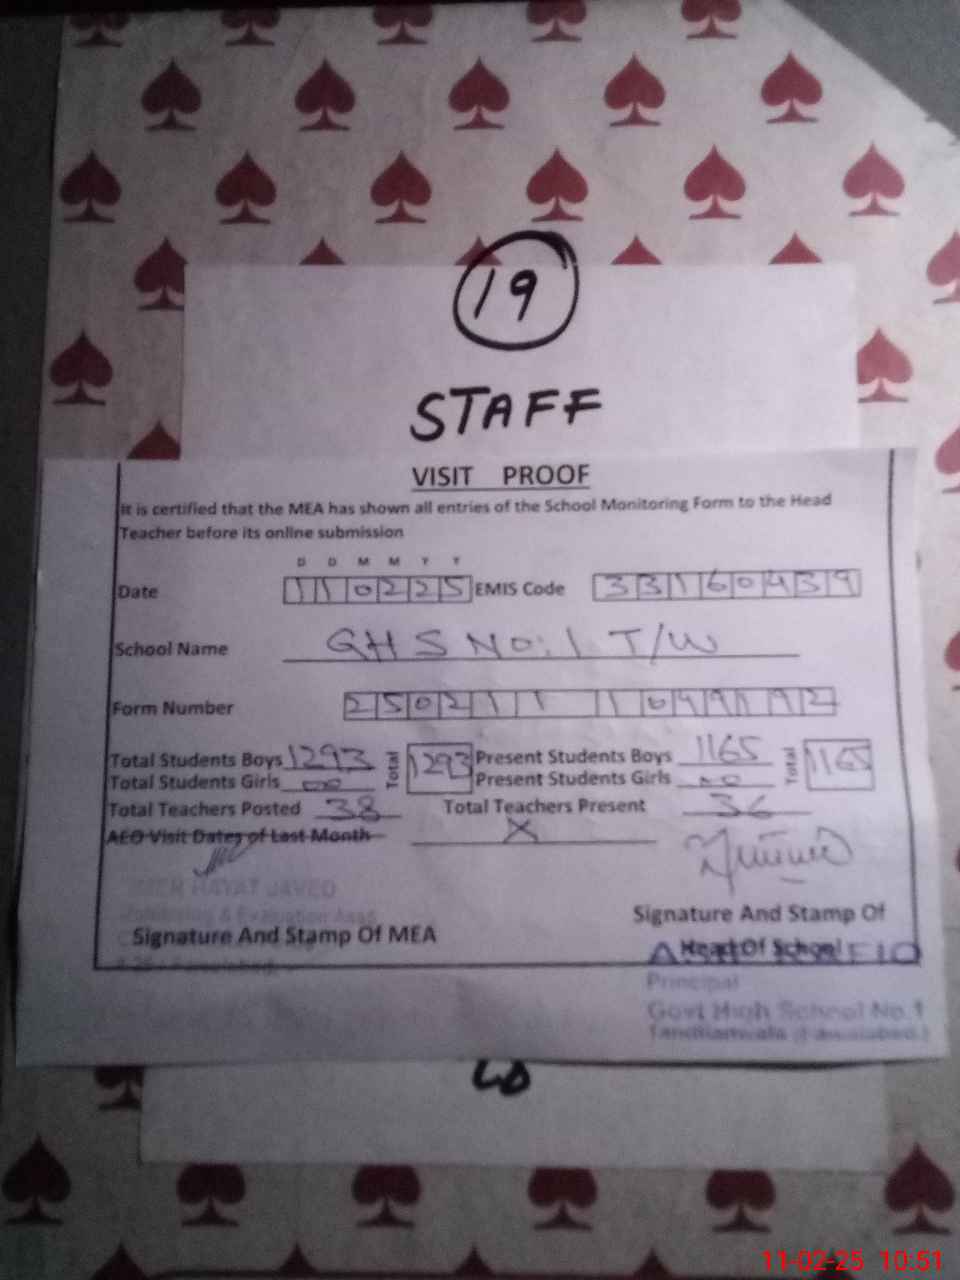 19
STAFF
VISIT PROOF
It is certified that the MEA has shown all entries of the School Monitoring Form to the Head
Teacher before its online submission
D D M M Y Y
Date 110225 EMIS Code 33160439
School Name GHS No: 1 T/W
Form Number 250211 1049192
Total Students Boys 1293 Total 1293 Present Students Boys 1165 Total 1165
Total Students Girls 00 Present Students Girls 00
Total Teachers Posted 38 Total Teachers Present 36
AEO Visit Dates of Last Month X
HAYAT JAVED
& Evaluation
Signature And Stamp Of MEA
Signature And Stamp Of
Head Of School
Principal
Govt High School No.1
Tandlianwala
11-02-25 10:51